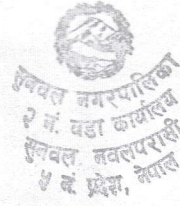 सुनवल नगरपालिका
२ नं. वडा कार्यालय
सुनवल, नवलपरासी
५ नं. प्रदेश, नेपाल